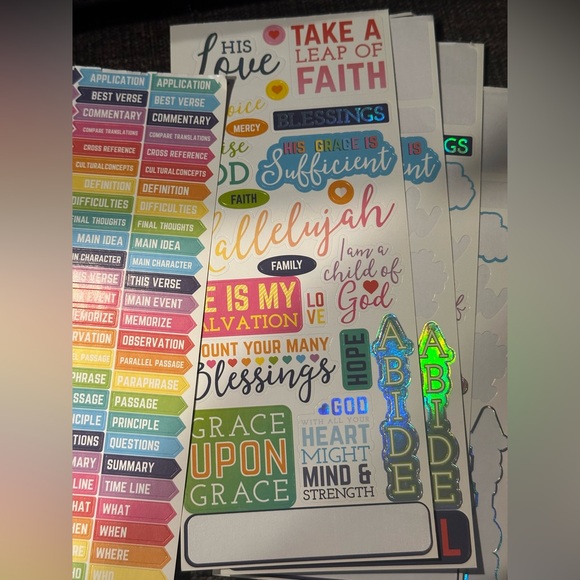 APPLICATION
BEST VERSE
COMMENTARY
COMPARE TRANSLATIONS
CROSS REFERENCE
CULTURALCONCEPTS
DEFINITION
DIFFICULTIES
FINAL THOUGHTS
MAIN IDEA
MAIN CHARACTER
THIS VERSE
MAIN EVENT
MEMORIZE
RVATION
LEL PASSAGE
PHRASE
SSAGE
NCIPLE
TIONS
MARY
LINE
HAT
HEN
ERE
HO
APPLICATION
BEST VERSE
COMMENTARY
COMPARE TRANSLATIONS
CROSS REFERENCE
CULTURALCONCEPTS
DEFINITION
DIFFICULTIES
FINAL THOUGHTS
MAIN IDEA
MAIN CHARACTER
THIS VERSE
MAIN EVENT
MEMORIZE
OBSERVATION
PARALLEL PASSAGE
PARAPHRASE
PASSAGE
PRINCIPLE
QUESTIONS
SUMMARY
TIME LINE
WHAT
WHEN
WHERE
WHO
HIS
Love
TAKE A
LEAP OF
FAITH
oice
MERCY
BLESSINGS
ise
OD
HIS GRACE IS
Sufficient
FAITH
Hallelujah
FAMILY
I am a
child of
God
E IS MY
ALVATION
LO
VE
OUNT YOUR MANY
Blessings
HOPE
ABIDE
GRACE
UPON
GRACE
GOD
WITH ALL YOUR
HEART
MIGHT
MIND &
STRENGTH
ent
ABIDE
L
GS